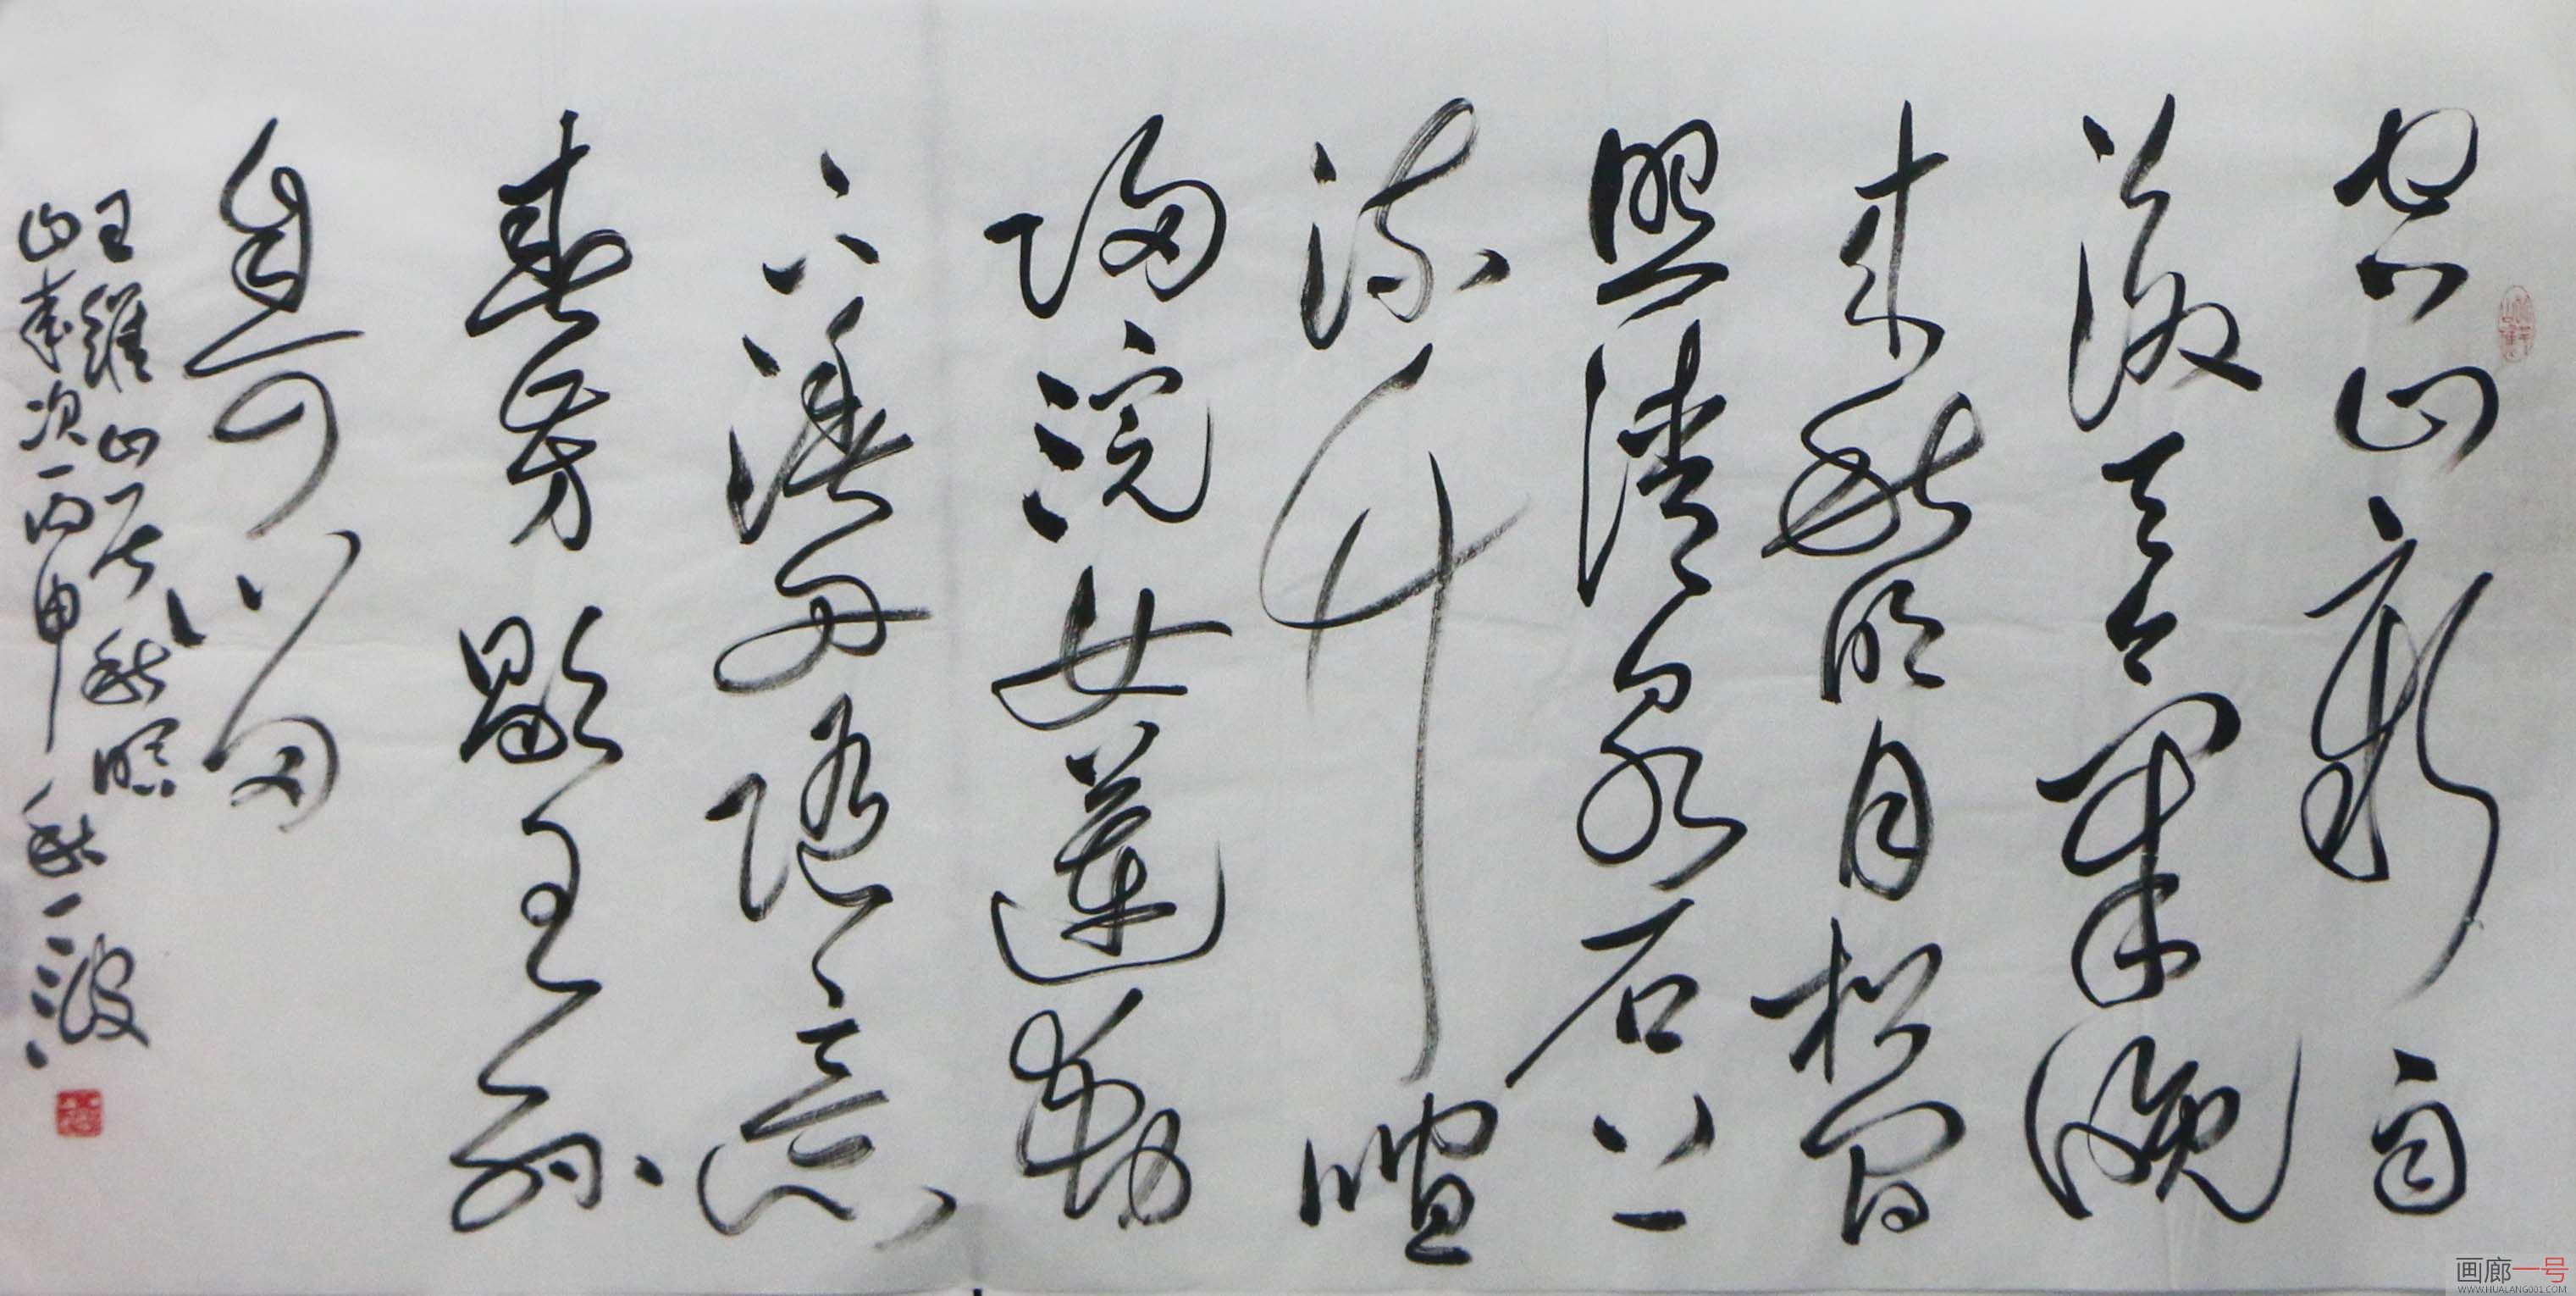 空山新雨
後天氣晚
來秋明月松間
照清泉石上
流竹喧
歸浣女蓮動
下漁舟隨意
春芳歇王孫
自可留
王維山居秋暝
歲次丙申秋波
画廊一号
WWW.HUALANG001.COM